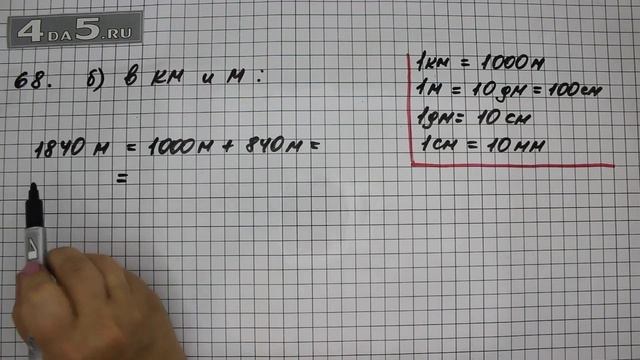 4DA5.RU
68. б) в км и м:
1840 м = 1000м + 840м =
=
1км = 1000м
1м = 10дм = 100см
1дм = 10 см
1см = 10мм